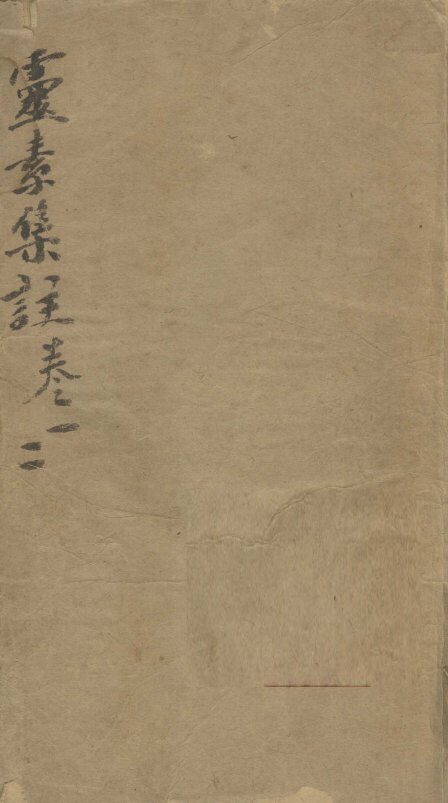 靈素集註卷一二